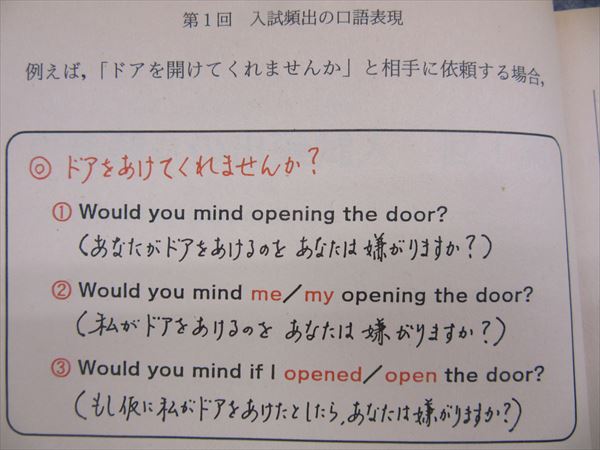 第1回 入試頻出の口語表現
例えば，「ドアを開けてくれませんか」と相手に依頼する場合，
◎ ドアをあけてくれませんか？
① Would you mind opening the door?
（あなたがドアをあけるのを あなたは嫌がりますか？）
② Would you mind me／my opening the door?
（私がドアをあけるのを あなたは嫌がりますか？）
③ Would you mind if I opened／open the door?
（もし仮に私がドアをあけたとしたら，あなたは嫌がりますか？）